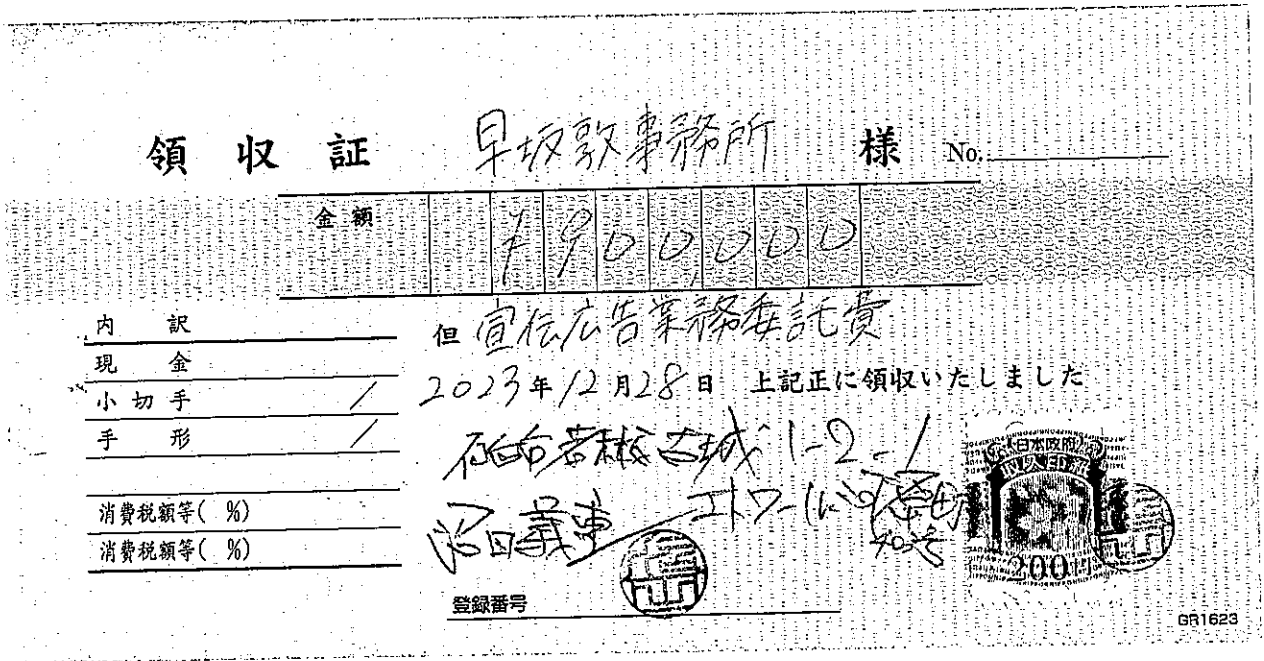 領収証 早坂敦事務所 様 No.
金額 ¥900,000
内訳
現金
小切手 /
手形 /
消費税額等( %)
消費税額等( %)
但 宣伝広告業務委託費
2023年12月28日 上記正に領収いたしました
古城 1-2-1
沼田
登録番号
日本政府
収入印紙
200
GR1623